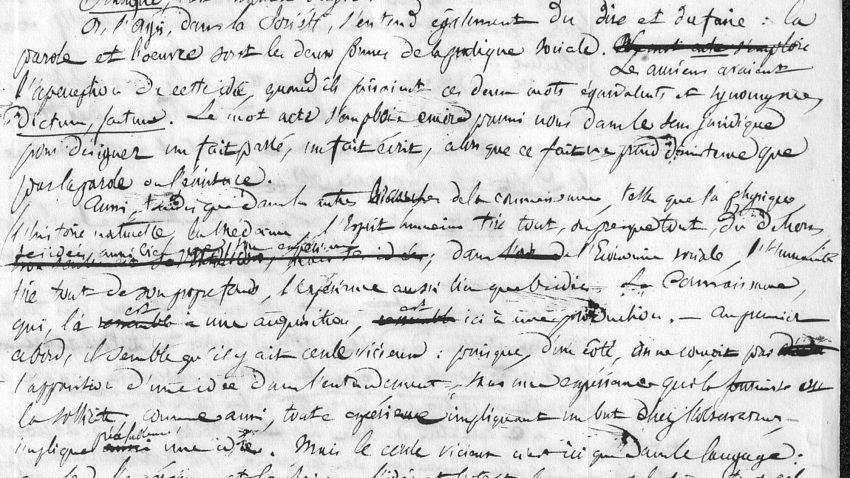 Or, l'Agir, dans la Société, s'entend également du dire et du faire : la
parole et l'oeuvre sont les deux formes de la pratique sociale.
Les anciens avaient
l'aperception de cette idée, quand ils faisaient ces deux mots équivalents et synonymes,
Dictum, factum. Le mot acte s'emploie encore parmi nous dans le sens juridique
pour désigner un fait passé, un fait écrit, alors que ce fait ne prend d'existence que
par la parole ou l'écriture.
Aussi, tandis que dans les autres branches de la connaissance, telles que la physique,
l'histoire naturelle, la médecine, l'Esprit humain tire tout, ou presque tout, du dehors,
ses idées aussi bien que son expérience; dans l'Economie sociale, l'Humanité
tire tout de son propre fonds, l'expérience aussi bien que l'idée. La Connaissance,
qui, là est une acquisition, est ici une production. — Au premier
abord, il semble qu'il y ait cercle vicieux : puisque, d'un côté, on ne conçoit pas
l'apparition d'une idée dans l'entendement, sans une expérience qui la
la sollicite comme aussi, toute expérience impliquant un but chez l'observateur,
implique préalablement une idée. Mais le cercle vicieux n'est ici que dans le langage :